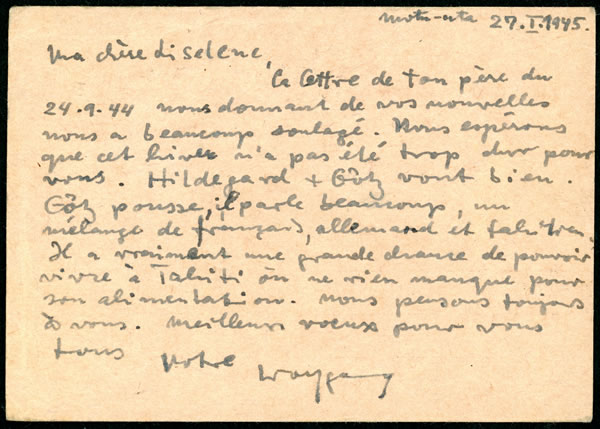 Motu-uta 27.I.1945.
Ma chère Liselene,
La lettre de ton père du
24.9.44 nous donnant de vos nouvelles
nous a beaucoup soulagé. Nous espérons
que cet hiver n'a pas été trop dur pour
vous. Hildegard + Götz vont bien.
Götz pousse, il parle beaucoup, un
mélange de français, allemand et tahitien.
Il a vraiment une grande chance de pouvoir
vivre à Tahiti où ne rien manque pour
son alimentation. Nous pensons toujours
à vous. Meilleurs voeux pour vous
tous
Votre Wolfgang